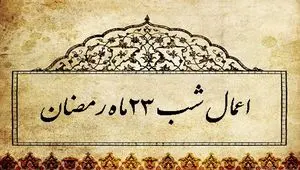 اعمال شب ۲۳ ماه رمضان